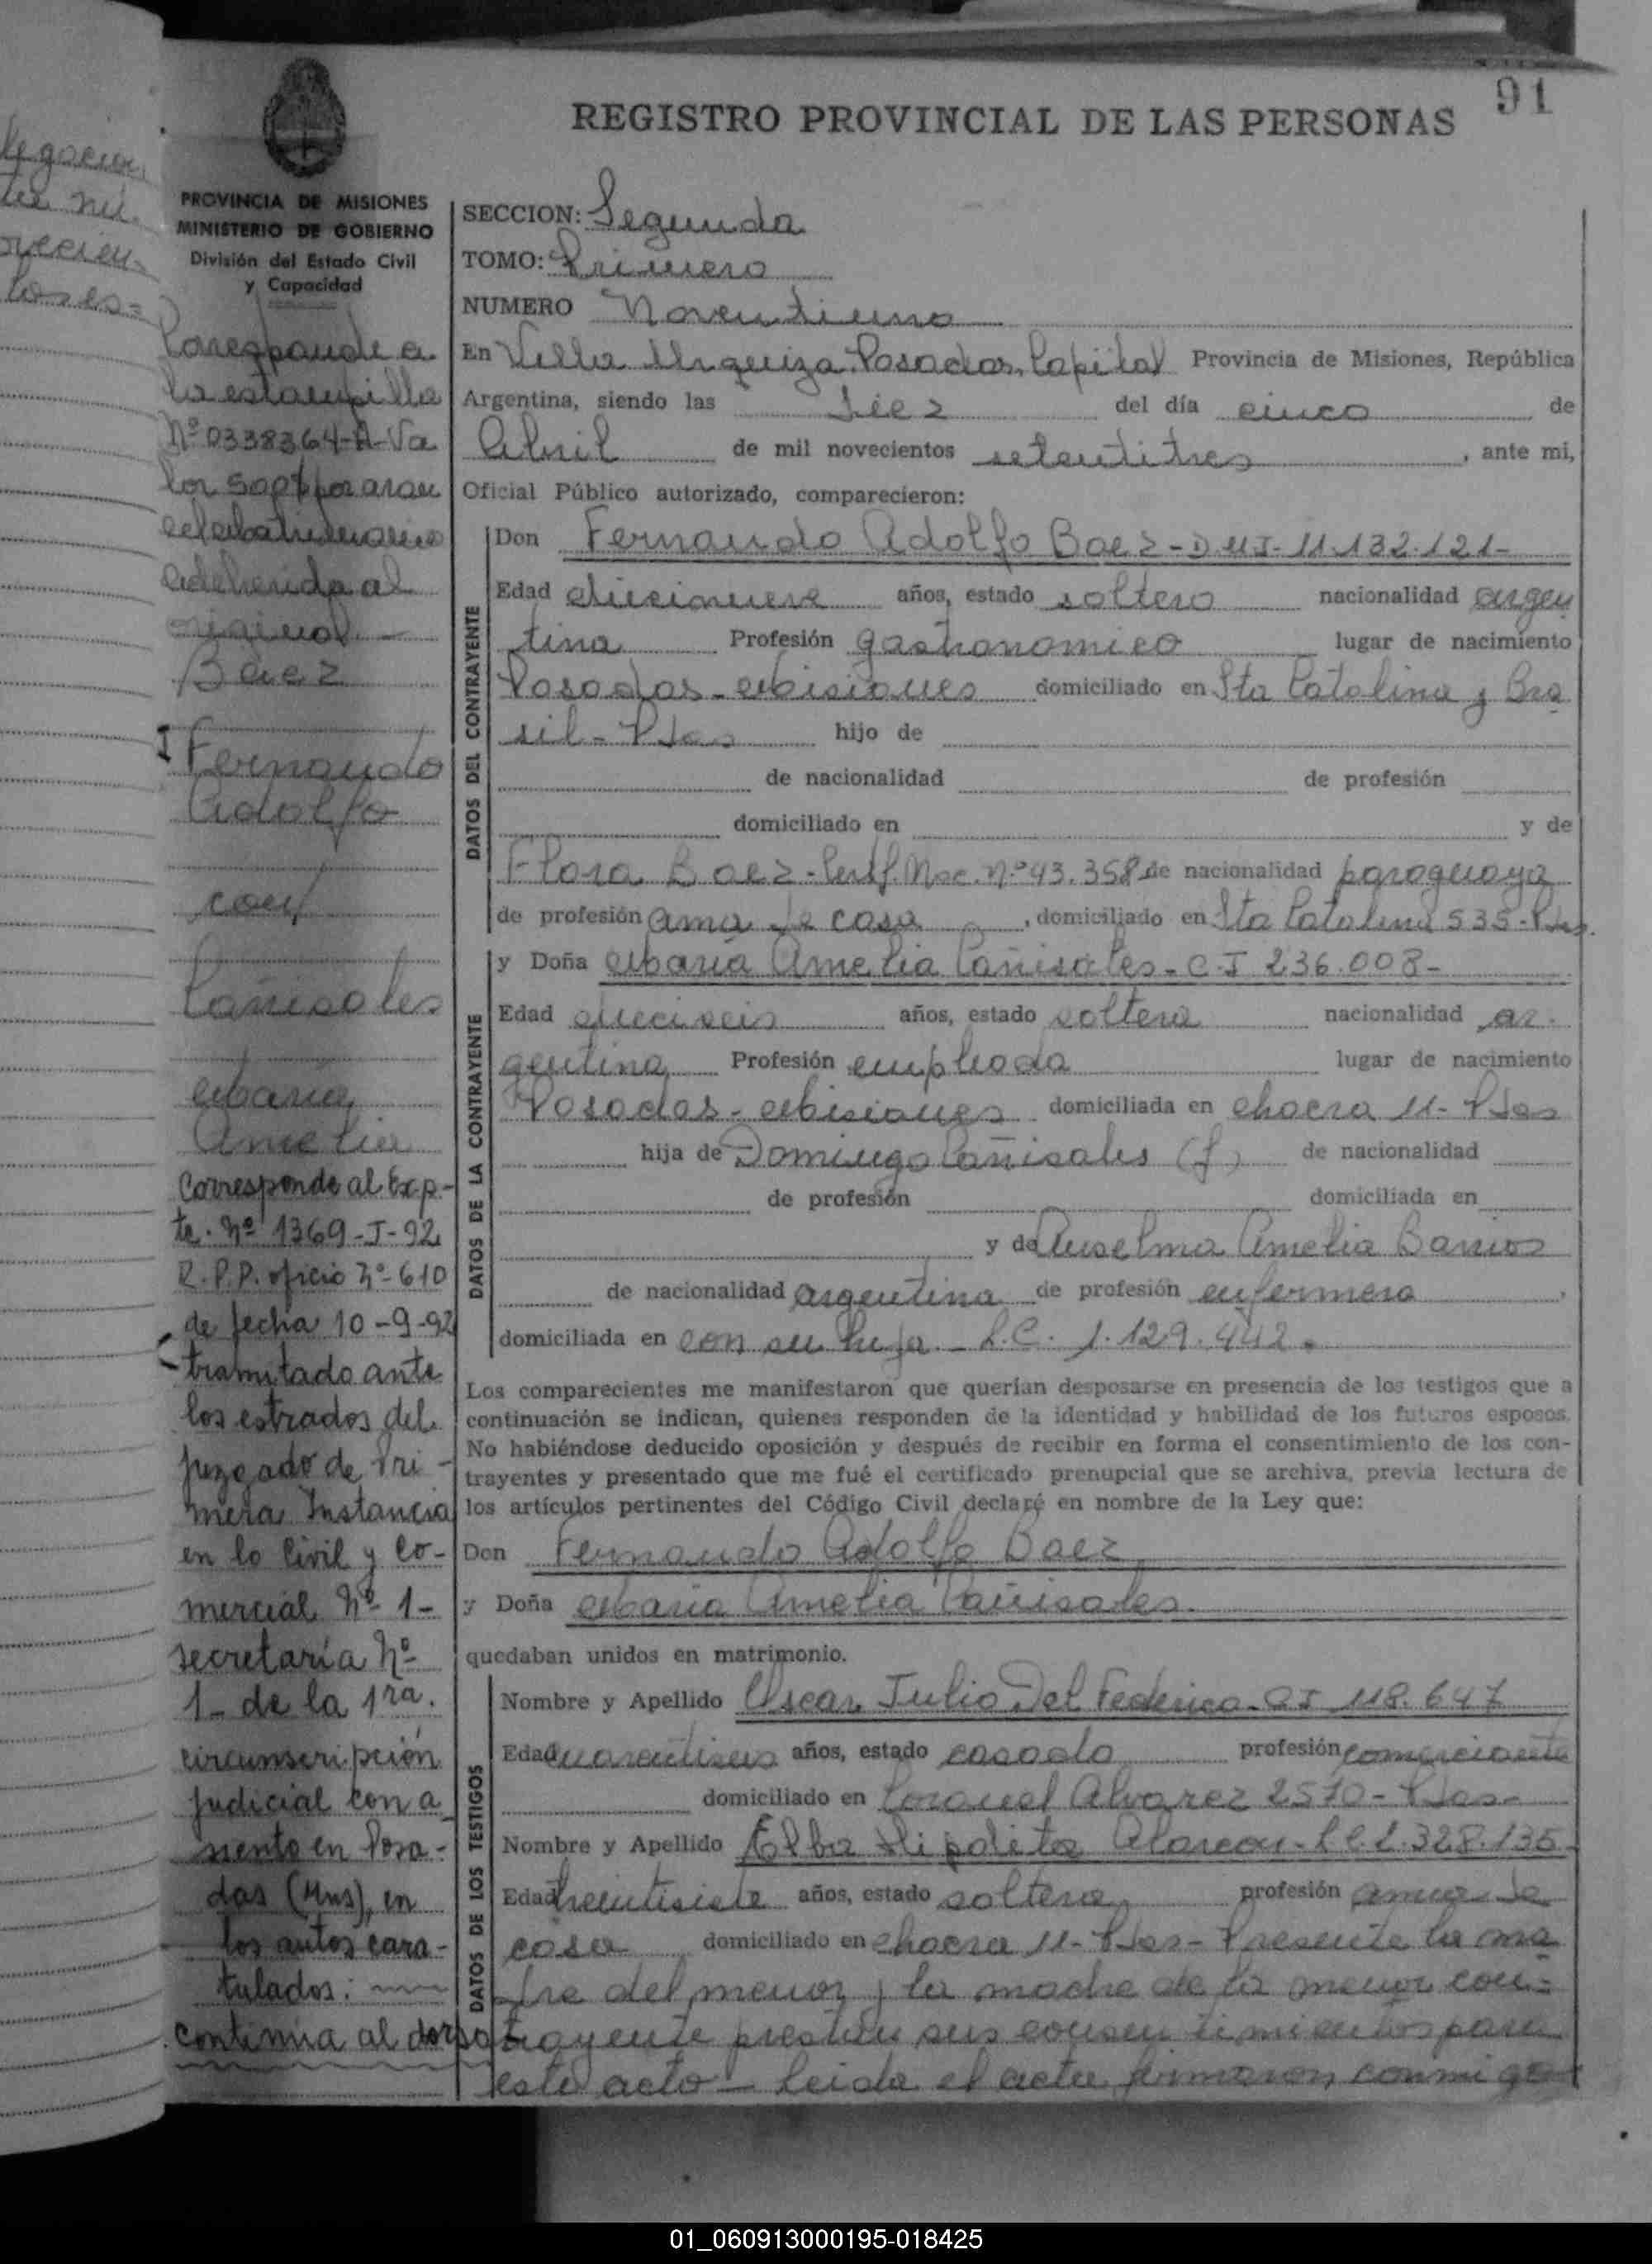 91
REGISTRO PROVINCIAL DE LAS PERSONAS
PROVINCIA DE MISIONES
MINISTERIO DE GOBIERNO
División del Estado Civil
y Capacidad
Corresponde a
la estampilla
Nº 0338364-A-Va
lor
adherida al
original
Baez
Fernando
Adolfo
con
Cañisales
María
Amelia
Corresponde al Exp-
te. Nº 1369-J-92
R.P.P. oficio Nº 610
de fecha 10-9-92
tramitado ante
los estrados del
juzgado de Pri-
mera Instancia
en lo Civil y Co-
mercial Nº 1-
secretaría Nº
1- de la 1ra.
circunscripción
judicial con a
siento en Posa-
das (Mns), en
los autos cara-
tulados:
continúa al dorso
SECCION: Segunda
TOMO: Primero
NUMERO Noventiuno
En Villa Urquiza, Posadas, Capital Provincia de Misiones, República
Argentina, siendo las diez del día cinco de
Abril de mil novecientos setentitres, ante mi,
Oficial Público autorizado, comparecieron:
DATOS DEL CONTRAYENTE
Don Fernando Adolfo Baez - D.N.I. 11.132.121-
Edad diecinueve años, estado soltero nacionalidad argen
tina Profesión gastronomico lugar de nacimiento
Posadas - Misiones domiciliado en Sta Catalina y Bra
sil - Pdas hijo de
de nacionalidad de profesión
domiciliado en y de
Flora Baez - Certf. Nac. Nº 43.358 de nacionalidad paraguaya
de profesión ama de casa, domiciliado en Sta Catalina 535 - Pdas.
DATOS DE LA CONTRAYENTE
y Doña María Amelia Cañisales - C.I 236.008-
Edad dieciseis años, estado soltera nacionalidad ar-
gentina Profesión empleada lugar de nacimiento
Posadas - Misiones domiciliada en chacra 11 - Pdas
hija de Domingo Cañisales (f) de nacionalidad
de profesión domiciliada en
y de Anselma Amelia Barrios
de nacionalidad argentina de profesión enfermera,
domiciliada en con su hija - L.C. 1.129.442.
Los comparecientes me manifestaron que querían desposarse en presencia de los testigos que a
continuación se indican, quienes responden de la identidad y habilidad de los futuros esposos.
No habiéndose deducido oposición y después de recibir en forma el consentimiento de los con-
trayentes y presentado que me fué el certificado prenupcial que se archiva, previa lectura de
los artículos pertinentes del Código Civil declaré en nombre de la Ley que:
Don Fernando Adolfo Baez
y Doña María Amelia Cañisales
quedaban unidos en matrimonio.
DATOS DE LOS TESTIGOS
Nombre y Apellido Oscar Julio Del Federico - CI 118.647
Edad años, estado casado profesión comerciante
domiciliado en Coronel Alvarez 2570 - Pdas-
Nombre y Apellido Elba Hipolita Alarcon -
Edad treintisiete años, estado soltera profesión ama de
casa domiciliado en chacra 11 - Pdas - Presente la ma
dre del menor y la madre de la menor con-
trayente prestan sus consentimientos para
este acto - Leida el acta firmaron conmigo
01_060913000195-018425